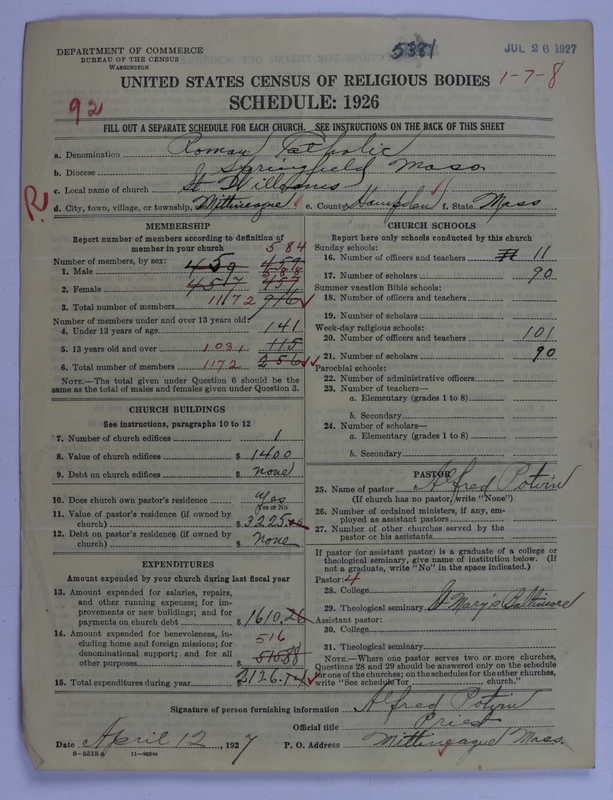 DEPARTMENT OF COMMERCE
BUREAU OF THE CENSUS
WASHINGTON
5381
JUL 26 1927
UNITED STATES CENSUS OF RELIGIOUS BODIES
1-7-8
92
SCHEDULE: 1926
FILL OUT A SEPARATE SCHEDULE FOR EACH CHURCH. SEE INSTRUCTIONS ON THE BACK OF THIS SHEET
a. Denomination Roman Catholic
b. Diocese Springfield Mass
c. Local name of church St Williams
R
d. City, town, village, or township, Mittineague e. County Hampden f. State Mass
MEMBERSHIP
Report number of members according to definition of member in your church
Number of members, by sex: 584
1. Male 459 459
588
2. Female 457 457
3. Total number of members 1172 916
Number of members under and over 13 years old:
4. Under 13 years of age 141
5. 13 years old and over 1031 115
6. Total number of members 1172 256
NOTE.—The total given under Question 6 should be
same as the total of males and females given under Question 3.
CHURCH BUILDINGS
See instructions, paragraphs 10 to 12
7. Number of church edifices 1
8. Value of church edifices $ 1400
9. Debt on church edifices $ none
10. Does church own pastor's residence yes
Yes or No
11. Value of pastor's residence (if owned by
church) $ 3225
12. Debt on pastor's residence (if owned by
church) $ None
EXPENDITURES
Amount expended by your church during last fiscal year
13. Amount expended for salaries, repairs,
and other running expenses; for im-
provements or new buildings; and for
payments on church debt $ 1610.26
14. Amount expended for benevolences, 516
including home and foreign missions; for
denominational support; and for all
other purposes $ 515.88
15. Total expenditures during year $ 2126.14
CHURCH SCHOOLS
Report here only schools conducted by this church
Sunday schools:
16. Number of officers and teachers 11
17. Number of scholars 90
Summer vacation Bible schools:
18. Number of officers and teachers
19. Number of scholars
Week-day religious schools:
20. Number of officers and teachers 101
21. Number of scholars 90
Parochial schools:
22. Number of administrative officers
23. Number of teachers—
a. Elementary (grades 1 to 8)
b. Secondary
24. Number of scholars—
a. Elementary (grades 1 to 8)
b. Secondary
PASTOR
25. Name of pastor Alfred Potvin
(If church has no pastor, write "None")
26. Number of ordained ministers, if any, em-
ployed as assistant pastors
27. Number of other churches served by the
pastor or his assistants
If pastor (or assistant pastor) is a graduate of a college or
theological seminary, give name of institution below. (If
not a graduate, write "No" in the space indicated.)
Pastor: 4
28. College
29. Theological seminary St Mary's Baltimore
Assistant pastor:
30. College
31. Theological seminary
NOTE.—Where one pastor serves two or more churches,
Questions 28 and 29 should be answered only on the schedule
for one of the churches; on the schedules for the other churches,
write "See schedule for church."
Signature of person furnishing information Alfred Potvin
Official title Priest
Date April 12, 1927 P. O. Address Mittineague Mass.
8—5518a 11—9054